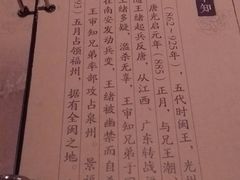 知
（862－925年），五代时闽王，光州
唐光启元年（885）正月，与兄王潮
王绪起兵反唐，从江西、广东转战
王绪多疑，滥杀无辜，王审知兄弟于
在南安发动兵变，王绪被幽禁而自
王审知兄弟率部攻占泉州。景福
893 五月占领福州，据有全闽之地。